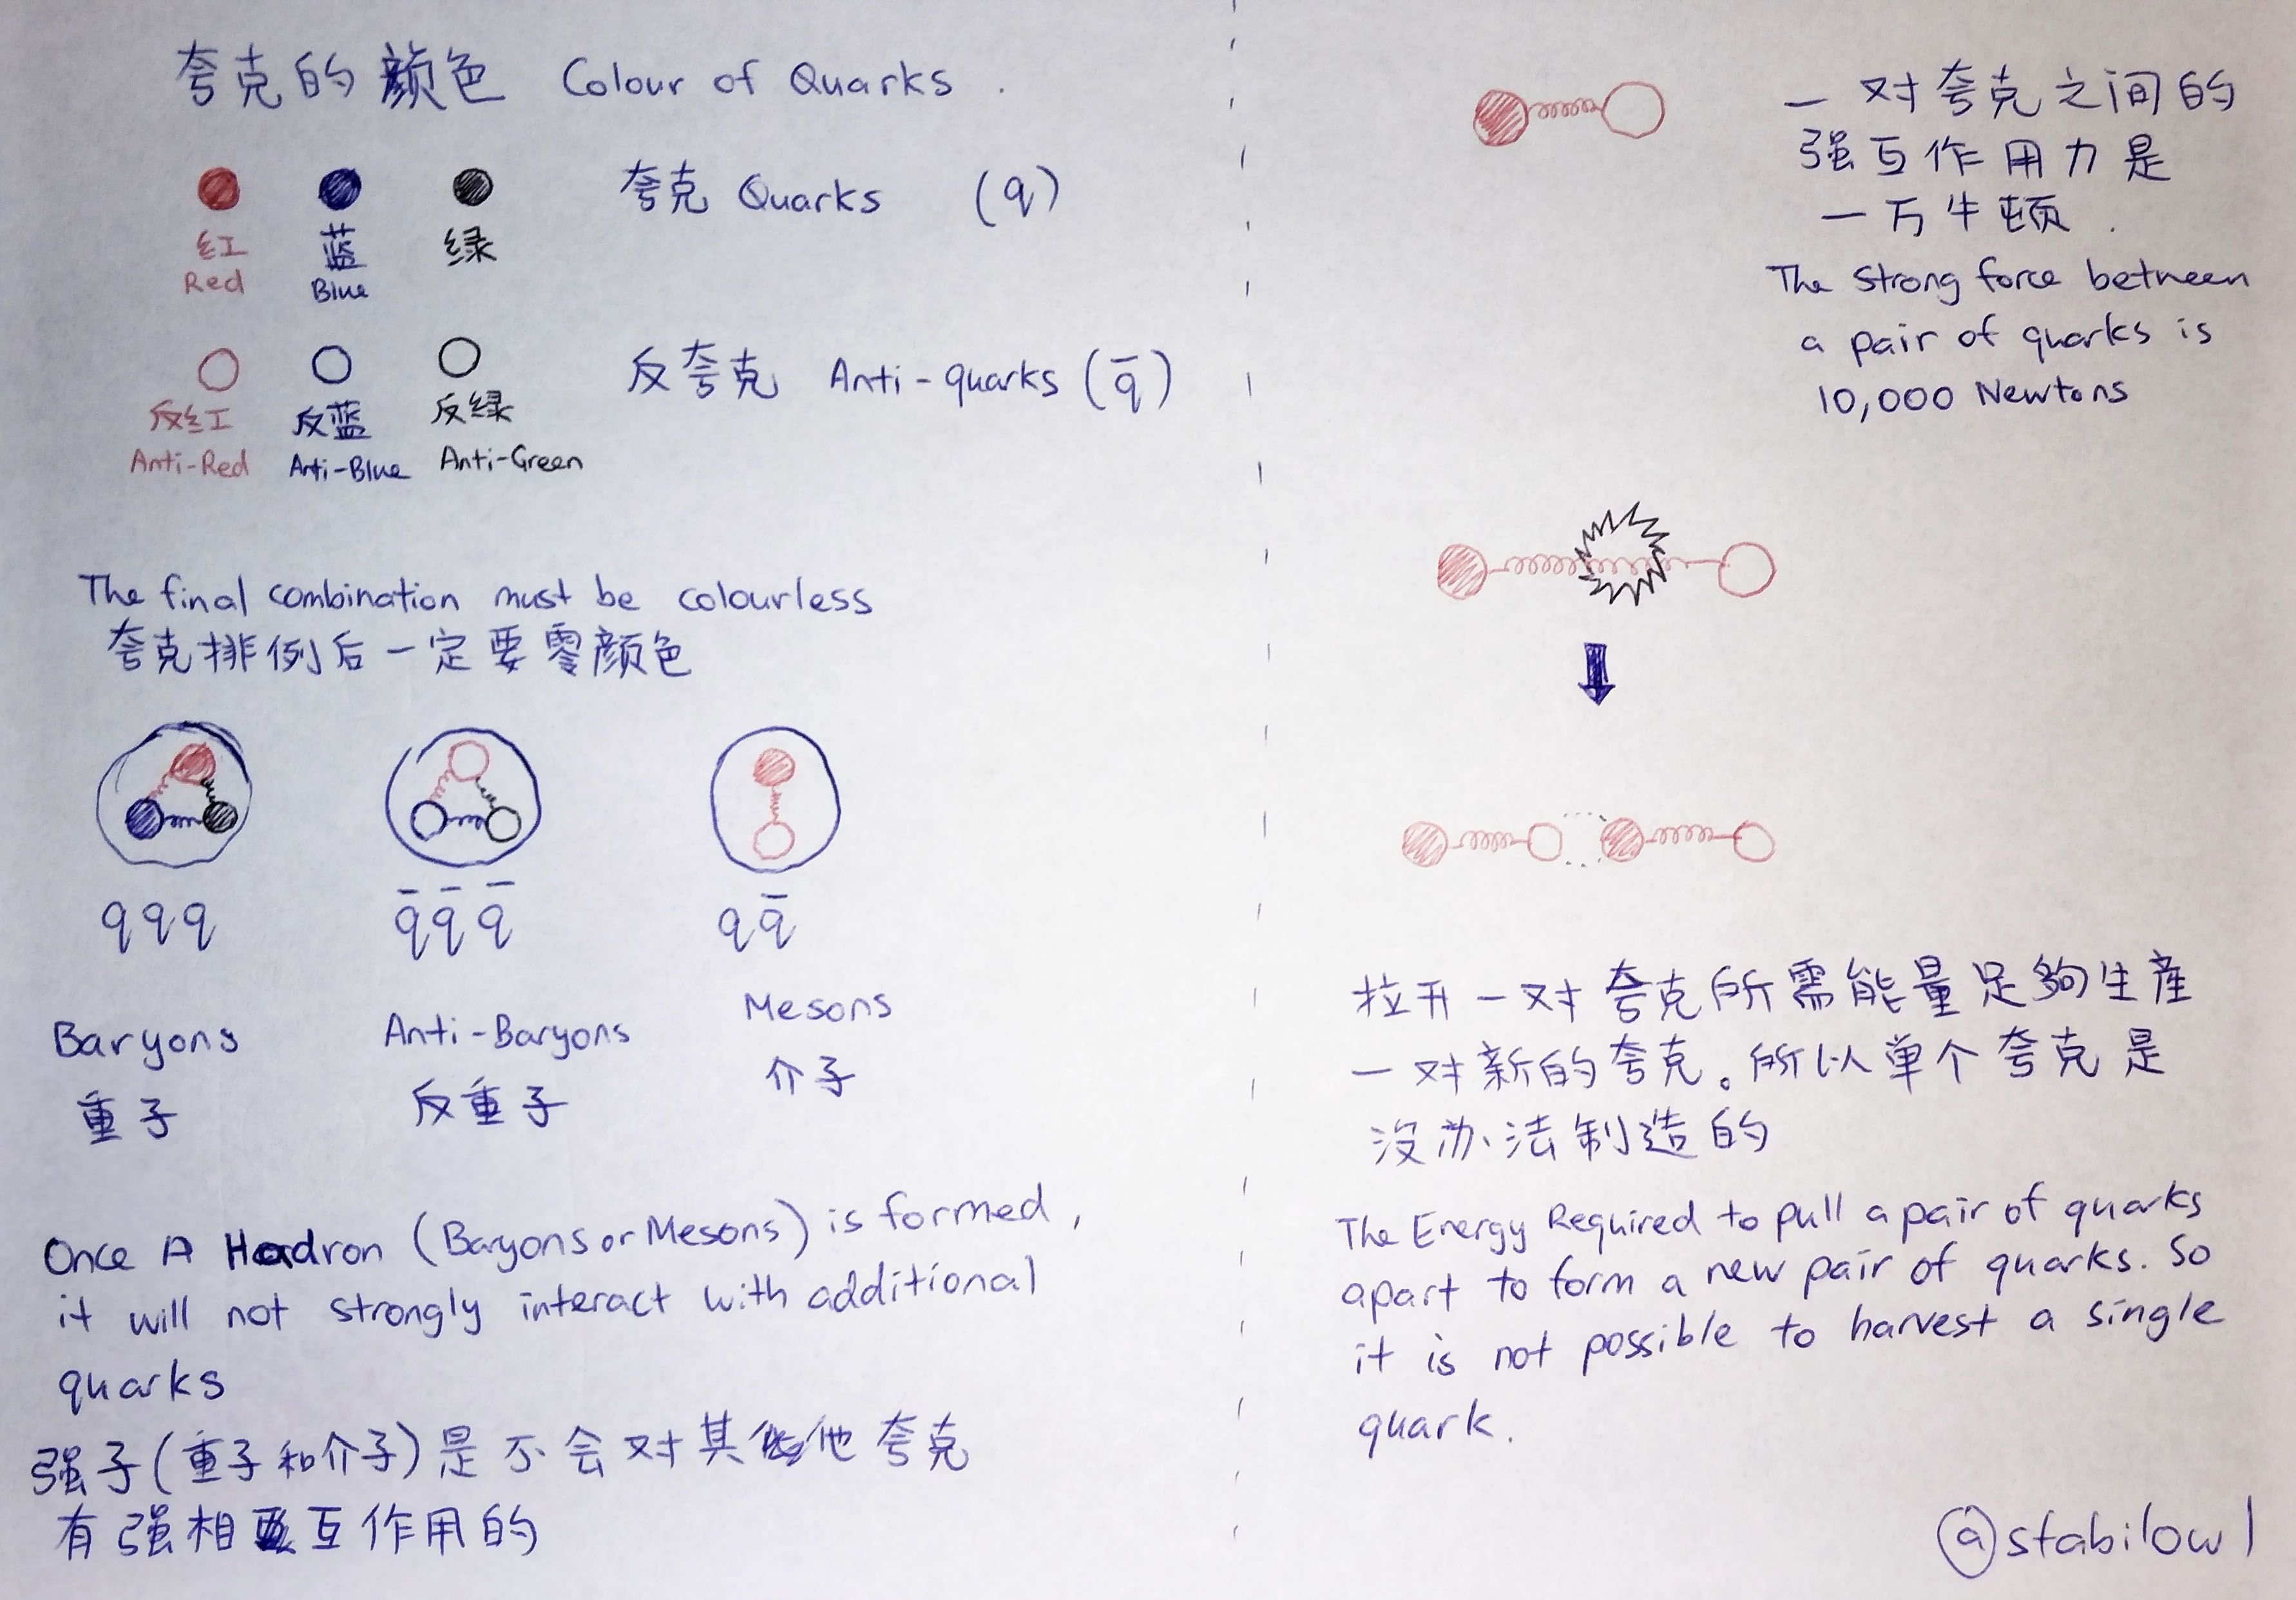 夸克的颜色 Colour of Quarks .
夸克 Quarks (q)
红 蓝 绿
Red Blue
反夸克 Anti-quarks (q̄)
反红 反蓝 反绿
Anti-Red Anti-Blue Anti-Green
The final combination must be colourless
夸克排例后一定要零颜色
qqq q̄q̄q̄ qq̄
Baryons Anti-Baryons Mesons
重子 反重子 介子
Once A Hadron (Baryons or Mesons) is formed,
it will not strongly interact with additional
quarks
强子(重子和介子)是不会对其他夸克
有强相互作用的
一对夸克之间的
强互作用力是
一万牛顿.
The strong force between
a pair of quarks is
10,000 Newtons
拉开一对夸克所需能量足够生産
一对新的夸克。所以单个夸克是
没办法制造的
The Energy Required to pull a pair of quarks
apart to form a new pair of quarks. So
it is not possible to harvest a single
quark.
@stabilowl